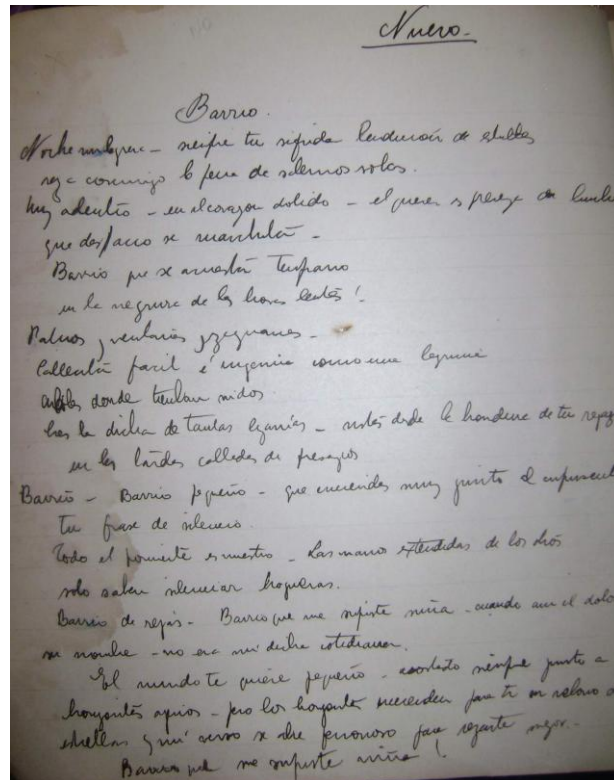 Nuevo.-
Barrio.
Noche milagrera - siempre tu rígida de estrellas
reza conmigo la pena de sabernos solos.
Muy adentro - en el corazon dolido - el querer
que despacio se marchitó -
Barrio que se acuesta temprano
en la negrura de las horas lentas!
Patios y ventanas -
Callecita facil é ingenua como una lagrima
donde tiemblan nidos
la dicha de tantas - desde la hondura de tu
en las tardes calladas de presagios
Barrio - Barrio pequeño - que enciendes muy junto al
tu frase de silencio.
Todo el poniente es nuestro - Las manos extendidas de los dos
solo saben silenciar hogueras.
Barrio de rejas - Barrio que me supiste niña - cuando aun el
su nombre - no era mi dicha cotidiana.
El mundo te quiere pequeño - acostado siempre junto a
horizontes - pero los horizontes encienden para ti un
estrellas y mi verso se abre para rezarte mejor -
Barrio que me supiste niña!